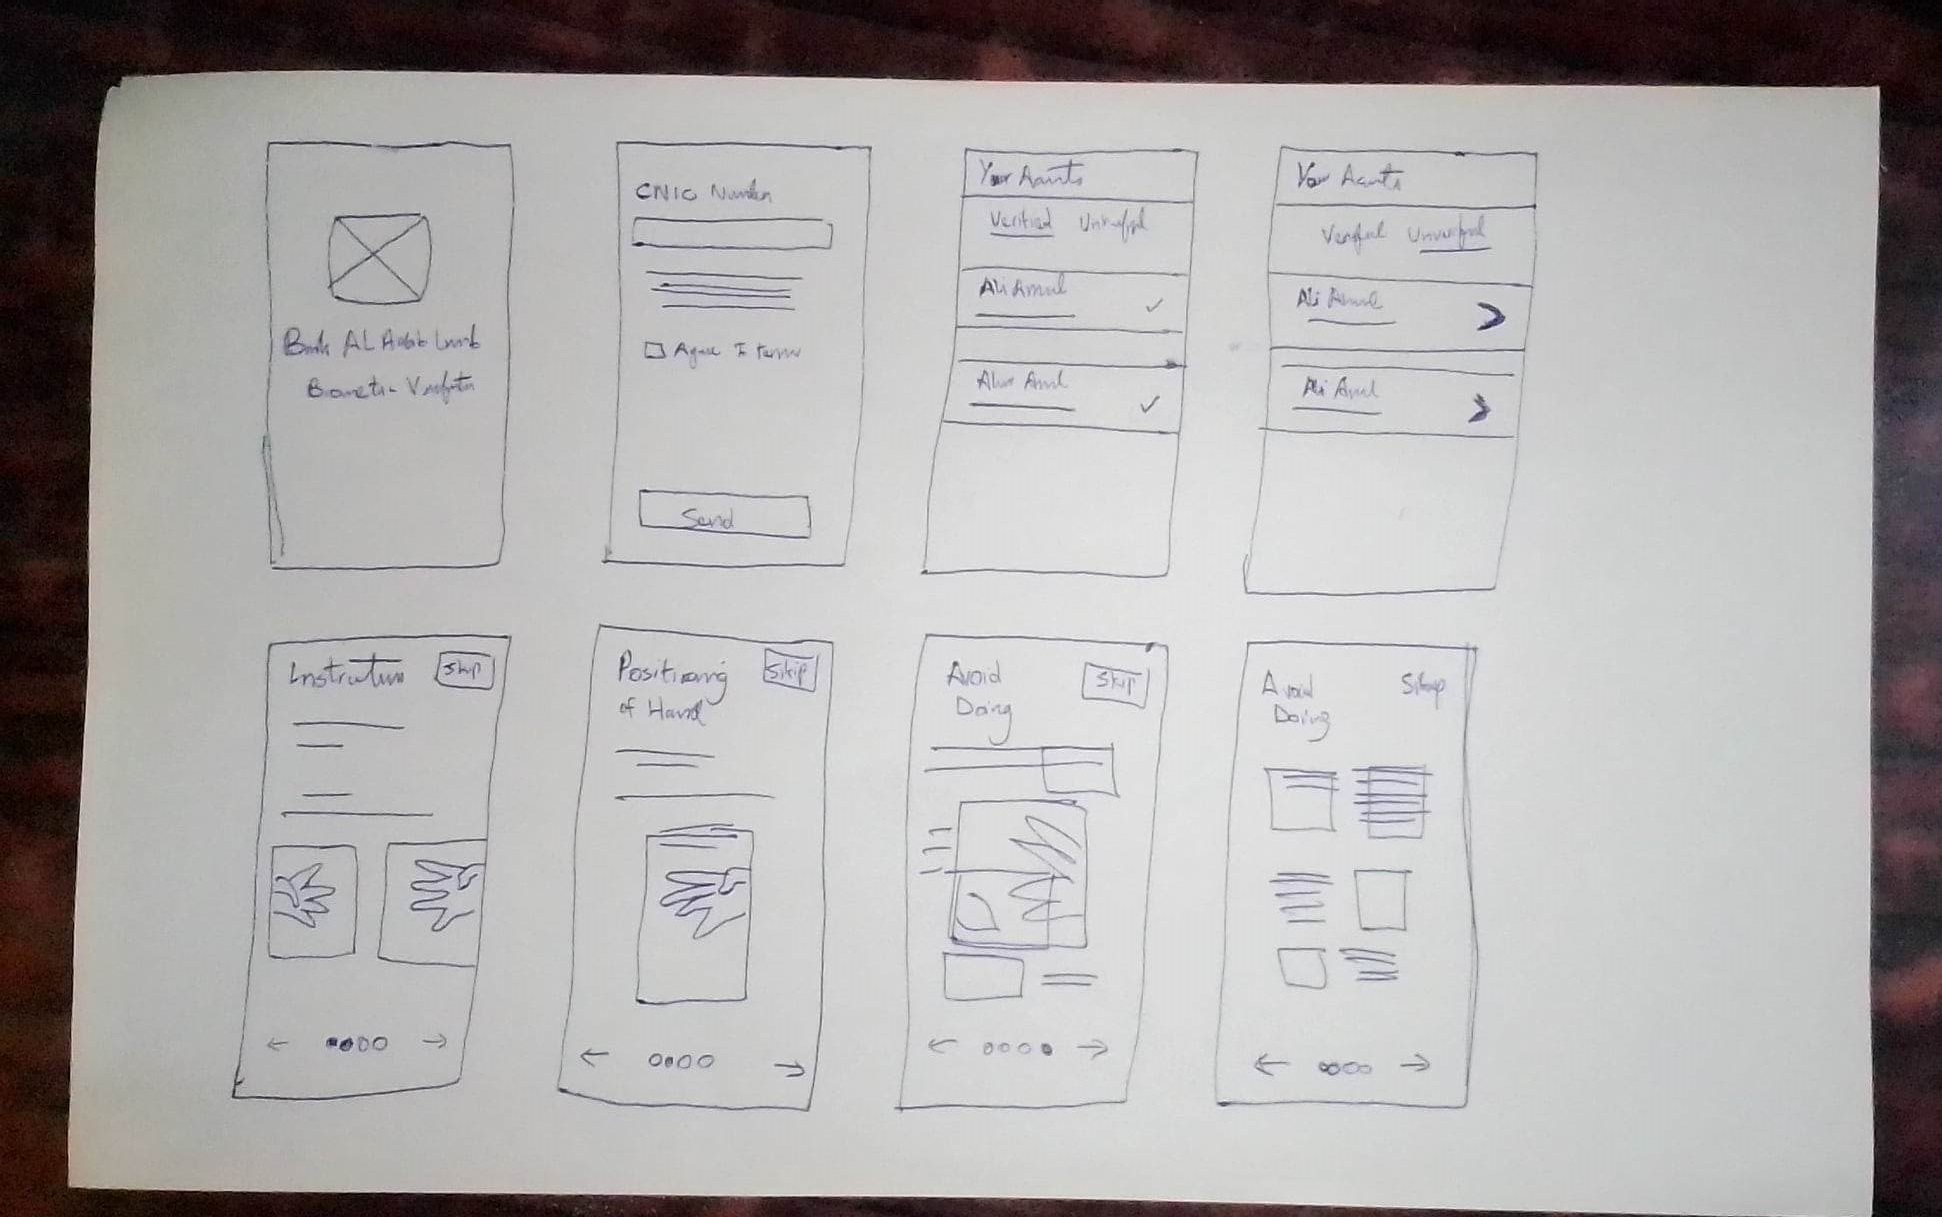 Bank AL Habib Limib
Biometri- Verifiction
CNIC Number
Agree To terms
Send
Your Aconts
Verified Unverified
Ali Amml
Your Aconts
Verified Unverified
Ali Amml
Ali Amml
Instruction Skip
Positioning Skip
of Hand
Avoid Skip
Doing
Avoid Skip
Doing